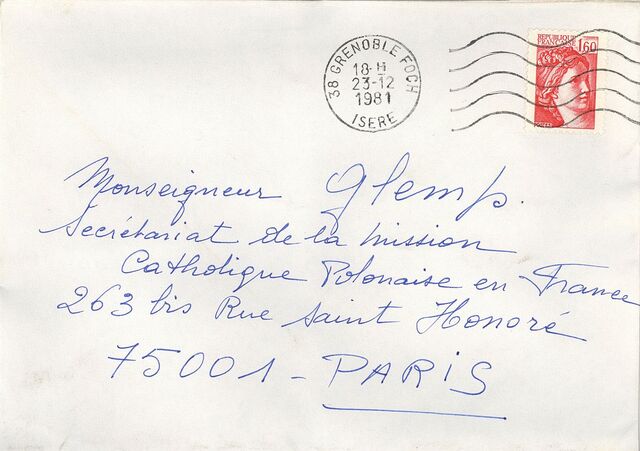 38 GRENOBLE FOCH
18-H
23-12
1981
ISERE
REPUBLIQUE
FRANCAISE 1,60
Monseigneur Glemp.
Secrétariat de la mission
Catholique Polonaise en France
263 bis Rue Saint Honoré
75001 - PARIS